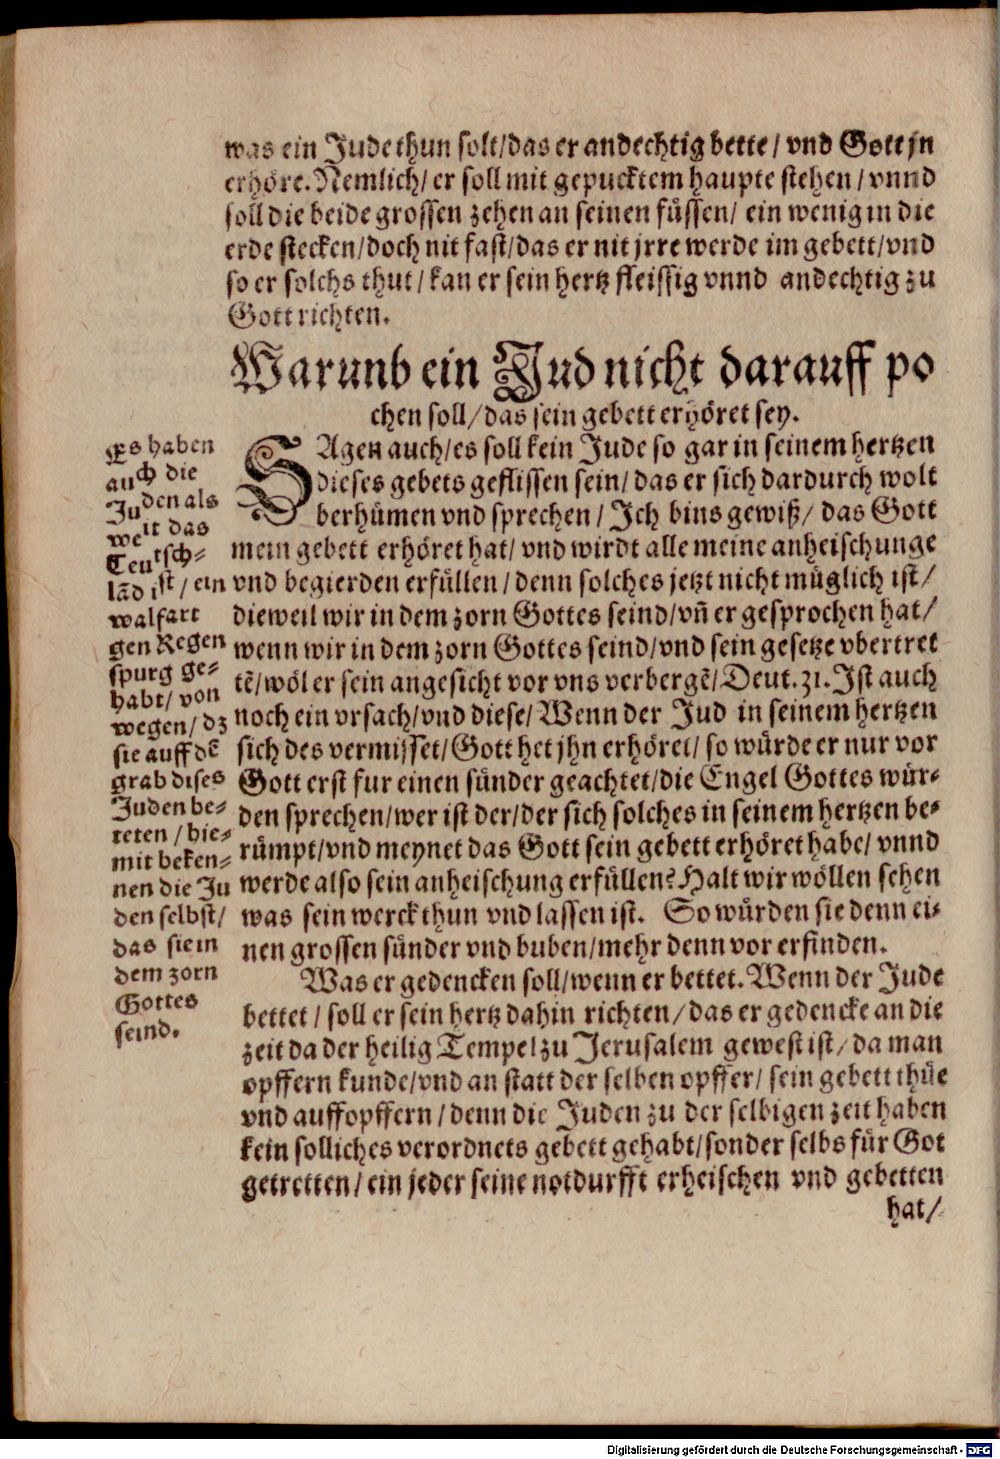 was ein Jude thun solt/das er andechtig bette/ vnd Gott jn
erhöre. Nemlich/ er soll mit gepucktem haupte stehen/ vnnd
soll die beide grossen zehen an seinen füssen/ ein wenig in die
erde stecken/doch nit fast/das er nit jrre werde im gebett/vnd
so er solchs thut/ kan er sein hertz fleissig vnnd andechtig zu
Gott richten.
Warunb ein Jud nicht darauff po
chen soll/das sein gebett erhöret sey.
SAgen auch/es soll kein Jude so gar in seinem hertzen
dieses gebets geflissen sein/ das er sich dardurch wolt
berhümen vnd sprechen/ Ich bins gewiß/ das Gott
mein gebett erhöret hat/ vnd wirdt alle meine anheischunge
vnd begierden erfüllen/denn solches jetzt nicht müglich ist/
dieweil wir in dem zorn Gottes seind/vñ er gesprochen hat/
wenn wir in dem zorn Gottes seind/vnd sein gesetze vbertret
tẽ/wöl er sein angesicht vor vns verbergẽ/Deut.31. Ist auch
noch ein vrsach/vnd diese/Wenn der Jud in seinem hertzen
sich des vermisset/Gott het jhn erhöret/ so würde er nur vor
Gott erst fur einen sünder geachtet/die Engel Gottes wür-
den sprechen/wer ist der/der sich solches in seinem hertzen be-
rümpt/vnd meynet das Gott sein gebett erhöret habe/ vnnd
werde also sein anheischung erfüllen? Halt wir wöllen sehen
was sein werck thun vnd lassen ist. So würden sie denn ei-
nen grossen sünder vnd buben/mehr denn vor erfinden.
Was er gedencken soll/wenn er bettet. Wenn der Jude
bettet/ soll er sein hertz dahin richten/das er gedencke an die
zeit da der heilig Tempel zu Jerusalem gewest ist/da man
opffern kunde/vnd an statt der selben opffer/ sein gebett thüe
vnd auffopffern/denn die Juden zu der selbigen zeit haben
kein solliches verordnets gebett gehabt/sonder selbs für Got
getretten/ein jeder seine notdurfft erheischen vnd gebetten
hat/
Es haben
auch die
Juden als
weit das
Teutsch-
lãd ist/ ein
walfart
gen Regen
spurg ge-
habt/ von
wegen/ dz
sie auff dẽ
grab dises
Juden be-
teten/hie-
mit beken-
nen die Ju
den selbst/
das sie in
dem zorn
Gottes
seind.
Digitalisierung gefördert durch die Deutsche Forschungsgemeinschaft - DFG